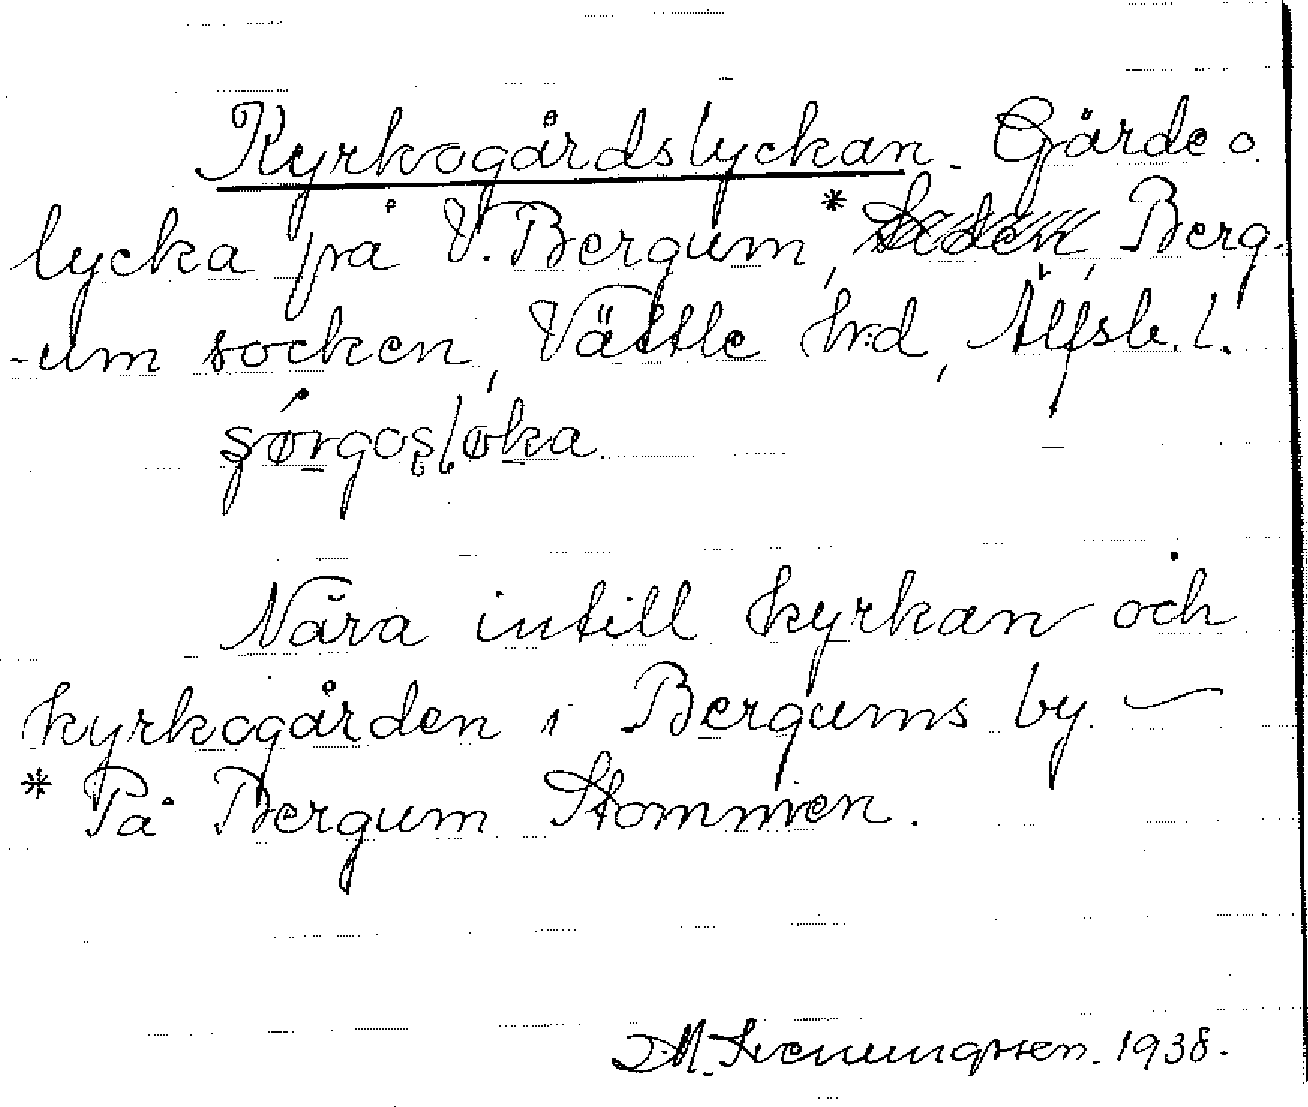 Kyrkogårdslyckan. Gärde o.
lycka på V. Bergum,* Berg-
-um socken, Vättle hrd, Älfsb. l.
Nära intill kyrkan och
kyrkogården i Bergums by. —
* På Bergum Stommen.
1938.